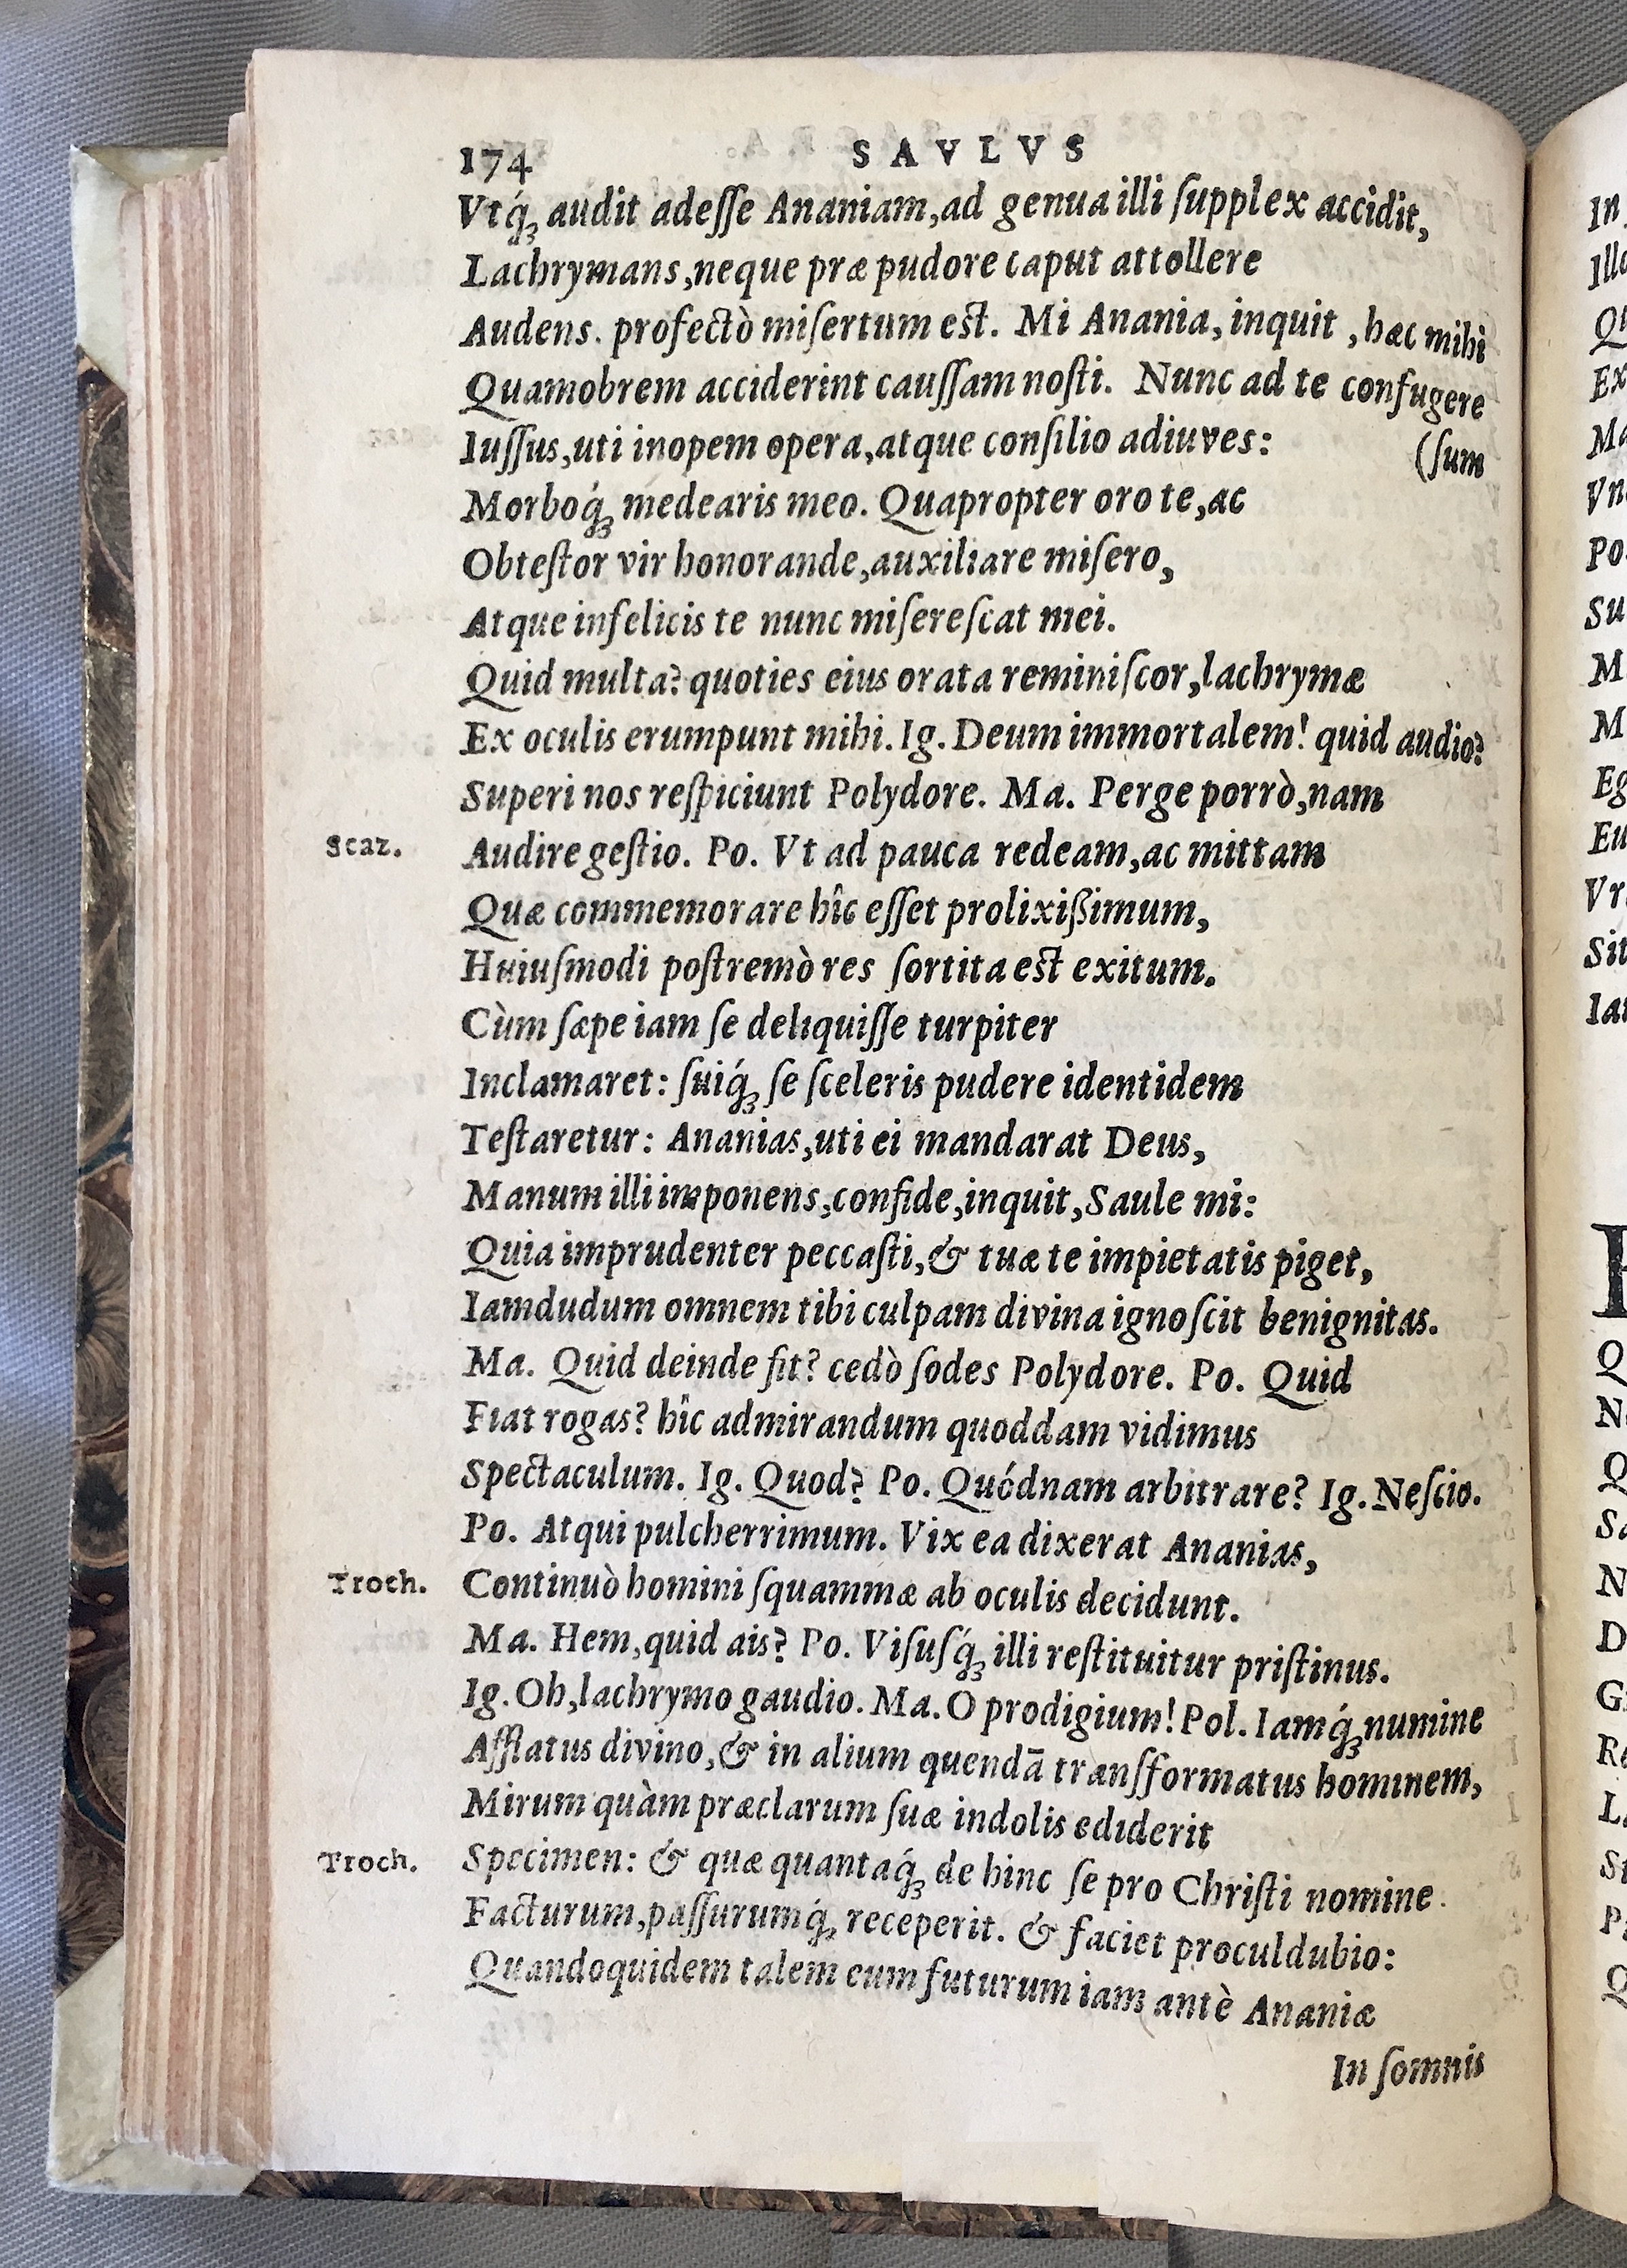 174 SAVLVS
Vtq́ꝫ audit adeſſe Ananiam,ad genua illi ſupplex accidit,
Lachrymans,neque præ pudore caput attollere
Audens. profectò miſertum eſt. Mi Anania, inquit , hæc mihi
Quamobrem acciderint cauſſam noſti. Nunc ad te confugere
Iuſſus,uti inopem opera,atque conſilio adiuves: (ſum
Morboq́ꝫ medearis meo. Quapropter oro te,ac
Obteſtor vir honorande,auxiliare miſero,
Atque infelicis te nunc miſereſcat mei.
Quid multa? quoties eius orata reminiſcor,lachrymæ
Ex oculis erumpunt mihi. Ig. Deum immortalem! quid audio?
Superi nos reſpiciunt Polydore. Ma. Perge porrò,nam
Scaz. Audire geſtio. Po. Vt ad pauca redeam,ac mittam
Quæ commemorare hîc eſſet prolixißimum,
Huiuſmodi poſtremò res ſortita eſt exitum.
Cùm ſæpe iam ſe deliquiſſe turpiter
Inclamaret: ſuiq́ꝫ ſe ſceleris pudere identidem
Teſtaretur: Ananias,uti ei mandarat Deus,
Manum illi imponens,confide,inquit,Saule mi:
Quia imprudenter peccaſti,& tuæ te impietatis piget,
Iamdudum omnem tibi culpam divina ignoſcit benignitas.
Ma. Quid deinde fit? cedò ſodes Polydore. Po. Quid
Fiat rogas? hîc admirandum quoddam vidimus
Spectaculum. Ig. Quod? Po. Quódnam arbitrare? Ig. Neſcio.
Po. Atqui pulcherrimum. Vix ea dixerat Ananias,
Troch. Continuò homini ſquammæ ab oculis decidunt.
Ma. Hem,quid ais? Po. Viſuſq́ꝫ illi reſtituitur priſtinus.
Ig. Oh,lachrymo gaudio. Ma. O prodigium! Pol. Iamq́ꝫ numine
Afflatus divino,& in alium quendā tranſformatus hominem,
Mirum quàm præclarum ſuæ indolis ediderit
Troch. Specimen: & quæ quantaq́ꝫ de hinc ſe pro Chriſti nomine
Facturum,paſſurumq́ꝫ receperit. & faciet proculdubio:
Quandoquidem talem eum futurum iam antè Ananiæ
In ſomnis